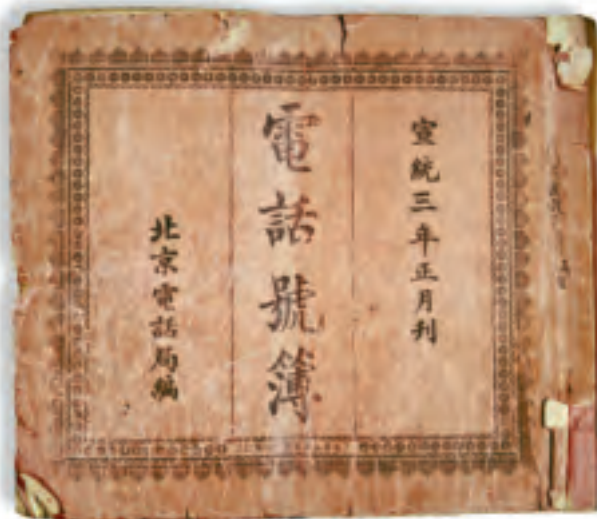 宣統三年正月刋
電話號簿
北京電話局編